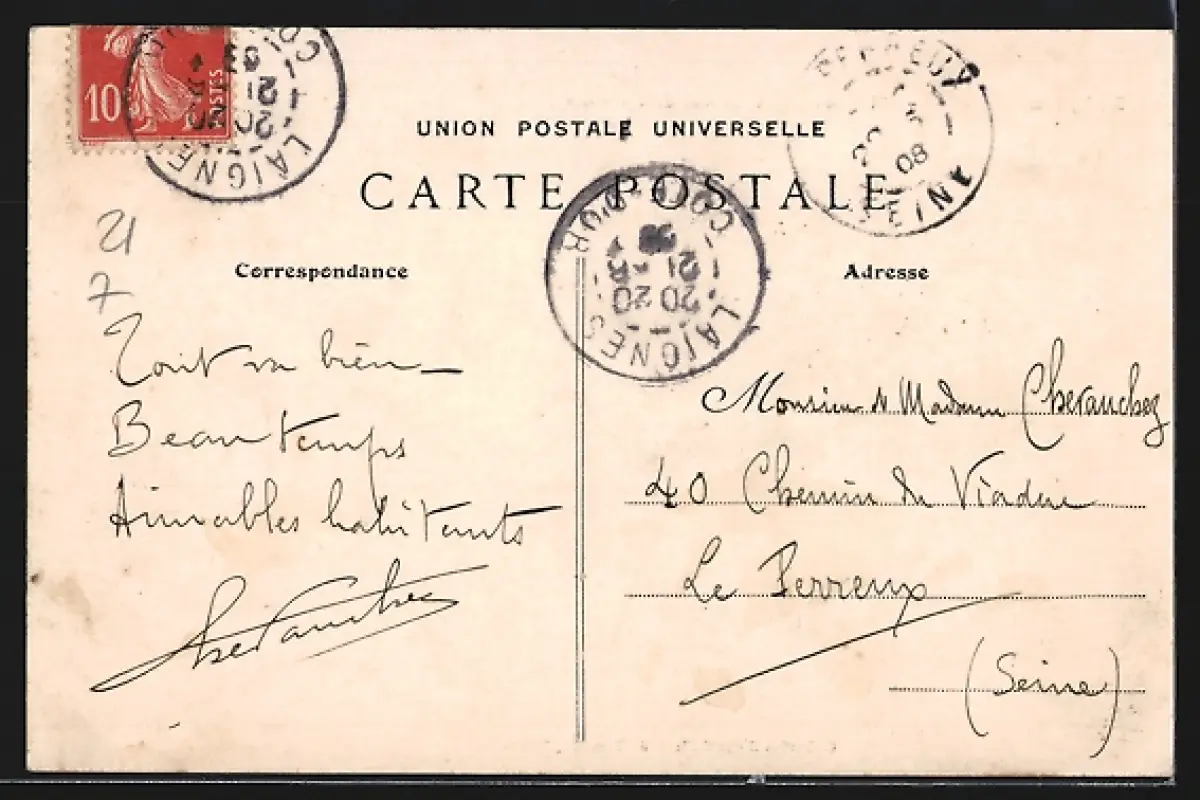 10
POSTES
LAIGNES
COTE-D'OR
20
21
UNION POSTALE UNIVERSELLE
CARTE POSTALE
LAIGNES
COTE-D'OR
20 20
21
08
Correspondance
Adresse
21
7
Tout va bien _
Beau temps
Aimables habitants
Monsieur & Madame Cheranchez
40 Chemin du Viaduc
Le Perreux
(Seine)